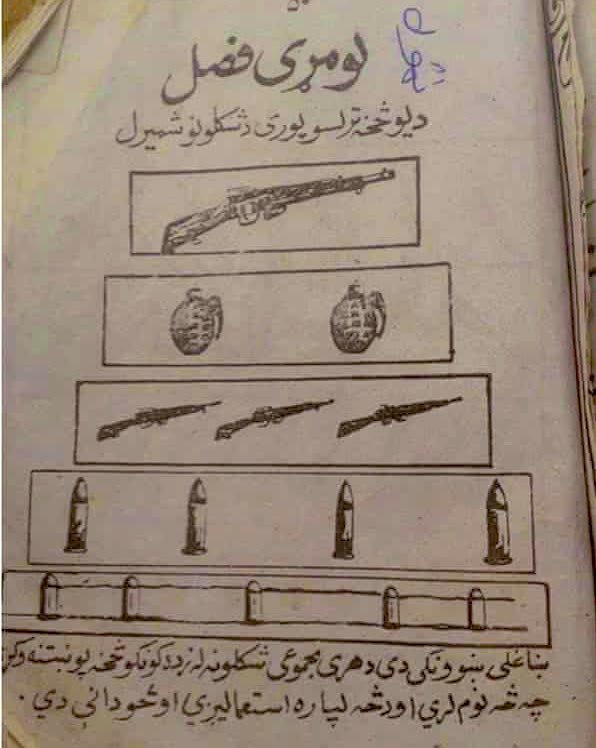 لومړی فصل
د یو څخه تر لسو پوری د شکلونو شمیرل
ښاغلی ښوونکی دی د هری مجموعی شکلونه له زده کونکو څخه پوښتنه وکړ
چه څه نوم لری او د څه لپاره استعمالیږی او څو دانې دي.